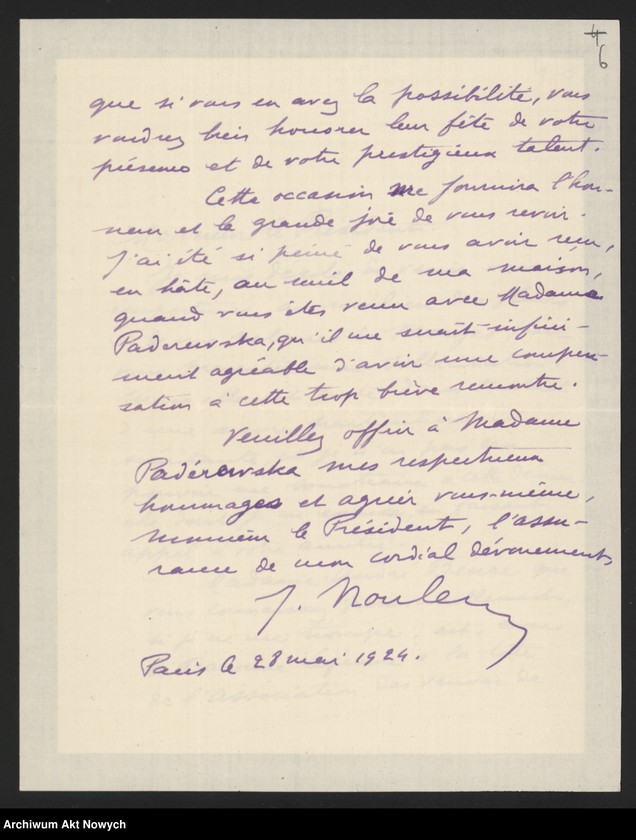 4
6
que si vous en avez la possibilité, vous
voudrez bien honorer leur fête de votre
présence et de votre prestigieux talent.
Cette occasion me fournira l'hon-
neur et la grande joie de vous revoir.
J'ai été si peiné de vous avoir reçu,
en hâte, au seuil de ma maison,
quand vous êtes venu avec Madame
Paderewska, qu'il me serait infini-
ment agréable d'avoir une compen-
sation à cette trop brève rencontre.
Veuillez offrir à Madame
Padérewska mes respectueux
hommages et agréer vous-même,
Monsieur le Président, l'assu-
rance de mon cordial dévouement
J. Noulens
Paris le 28 mai 1924.
Archiwum Akt Nowych